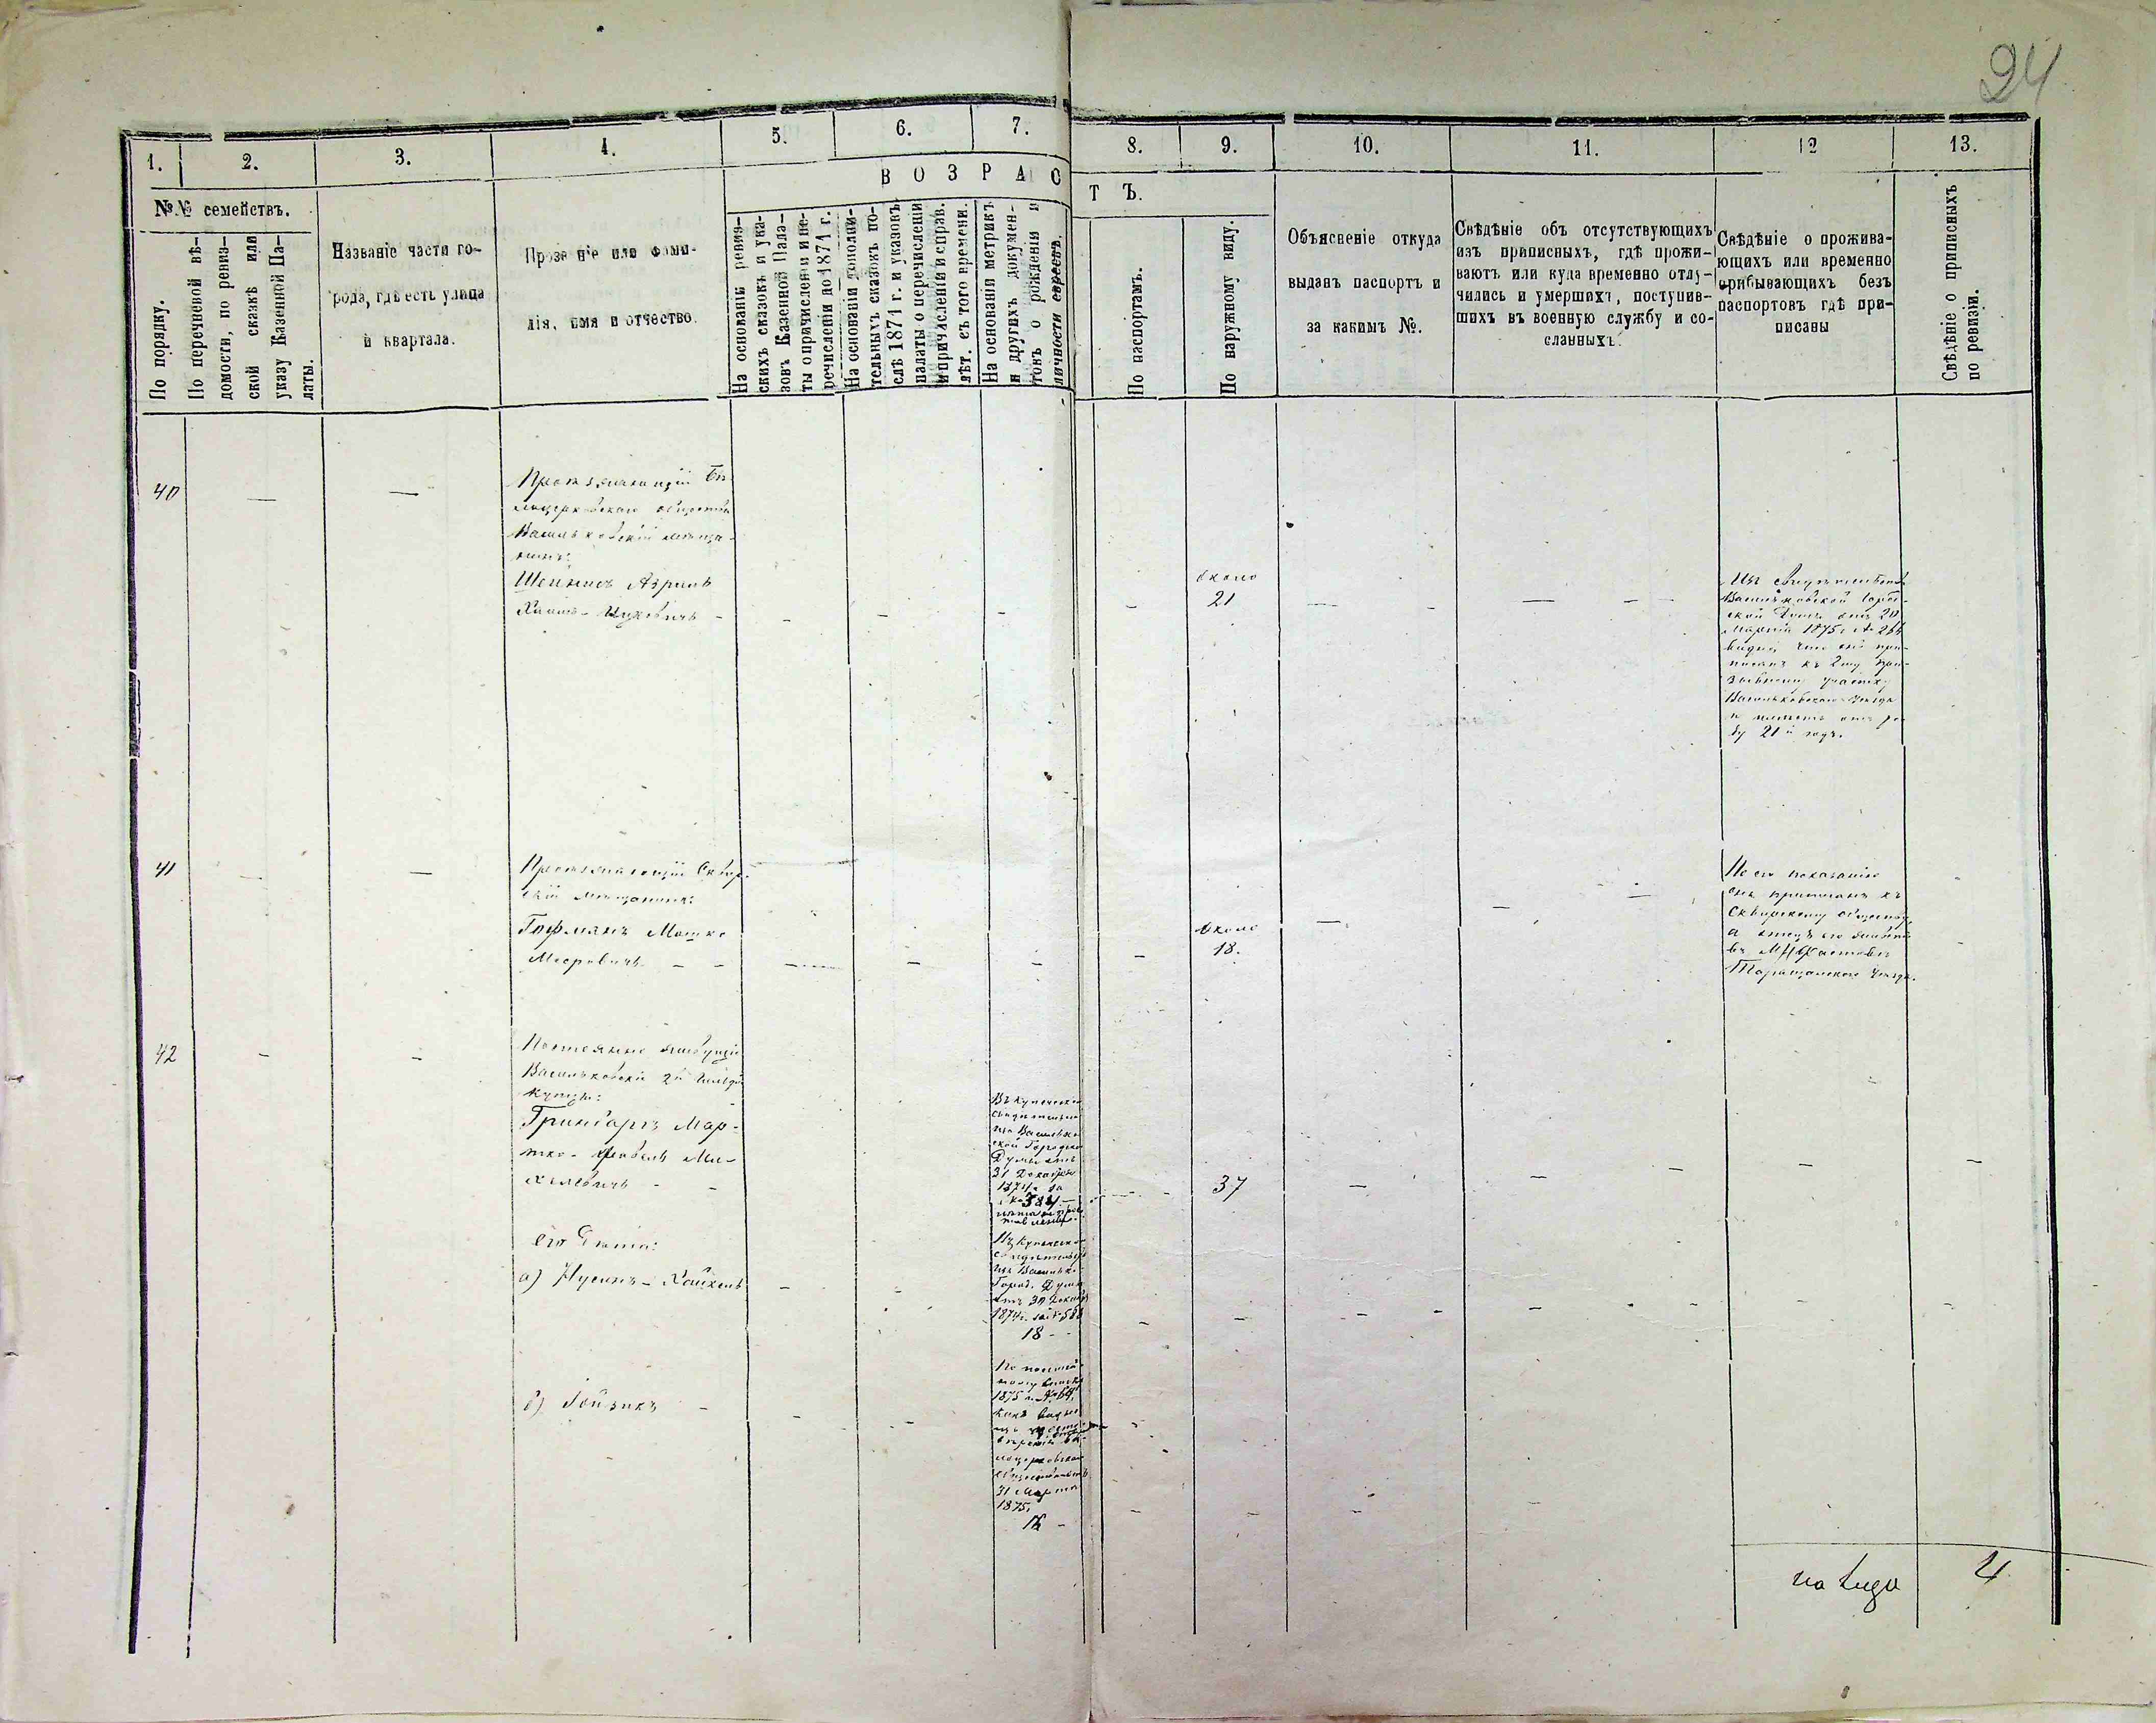 24
1. 2. 3. 4. 5. 6. 7. 8. 9. 10. 11. 12 13.
В О З Р А С Т Ъ.
№№ семействъ.
По порядку.
По перечневой вѣ-
домости, по ревиз-
ской сказкѣ или
указу Казенной Па-
латы.
Названіе части го-
рода, гдѣ есть улица
и квартала.
Прозваніе или фами-
лія, имя и отчество.
На основаніи ревиз-
скихъ сказокъ и ука-
зовъ Казенной Пала-
ты о причисленіи и пе-
речисленіи до 1871 г.
На основаніи дополни-
тельныхъ сказокъ по-
слѣ 1871 г. и указовъ
палаты о перечисленіи
и причисленіи и справ.
лѣт. съ того времени.
На основаніи метрикъ
и другихъ докумен-
товъ о рожденіи и
личности евреевъ.
По паспортамъ.
По наружному виду.
Объясненіе откуда
выданъ паспортъ и
за какимъ №.
Свѣдѣніе объ отсутствующихъ
изъ приписныхъ, гдѣ прожи-
ваютъ или куда временно отлу-
чились и умершихъ, поступив-
шихъ въ военную службу и со-
сланныхъ.
Свѣдѣніе о прожива-
ющихъ или временно
прибывающихъ безъ
паспортовъ гдѣ при-
писаны
Свѣдѣніе о приписныхъ
по ревизи.
40
Проживающій Бѣ-
лоцерковскаго общества
Васильковскій мѣща-
нинъ:
Шейнисъ Азриль
Хаимъ-Ицковичъ -
около
21
Изъ свидѣтельства
Васильковской Город-
ской Думы отъ 20
Марта 1875 г. № 264
видно, что онъ при-
писанъ къ 2му при-
зывному участку
Васильковскаго уѣзда
и имѣетъ отъ ро-
ду 21й годъ.
41
Проживающій Сквир-
скій мѣщанинъ:
Гофманъ Мошко
Мееровичъ - -
около
18.
По его показанію
онъ приписанъ къ
Сквирскому обществу,
а отецъ его живетъ
въ
Таращанскаго уѣзда.
42
Постоянно живущіе
Васильковскіе 2й гильдіи
купцы:
Гринбаргъ Мар-
тко- Ми-
хелевичъ - -
Въ купеческомъ
свидѣтельствѣ
изъ Васильков-
ской Городской
Думы отъ
31 Декабря
1874 г. за
№ 384 -
37
его дѣти:
а) Нусинъ-Хайкель
Изъ купеческаго
свидѣтельства
изъ Васильков.
Город. Думы
отъ 30 Декабря
1874 г. за № 588
18 - -
б) Гойзикъ -
По посемей-
ному списку
1875 г. № 69,
какъ видно
изъ
общества отъ
31 Марта
1875.
на лицо 4